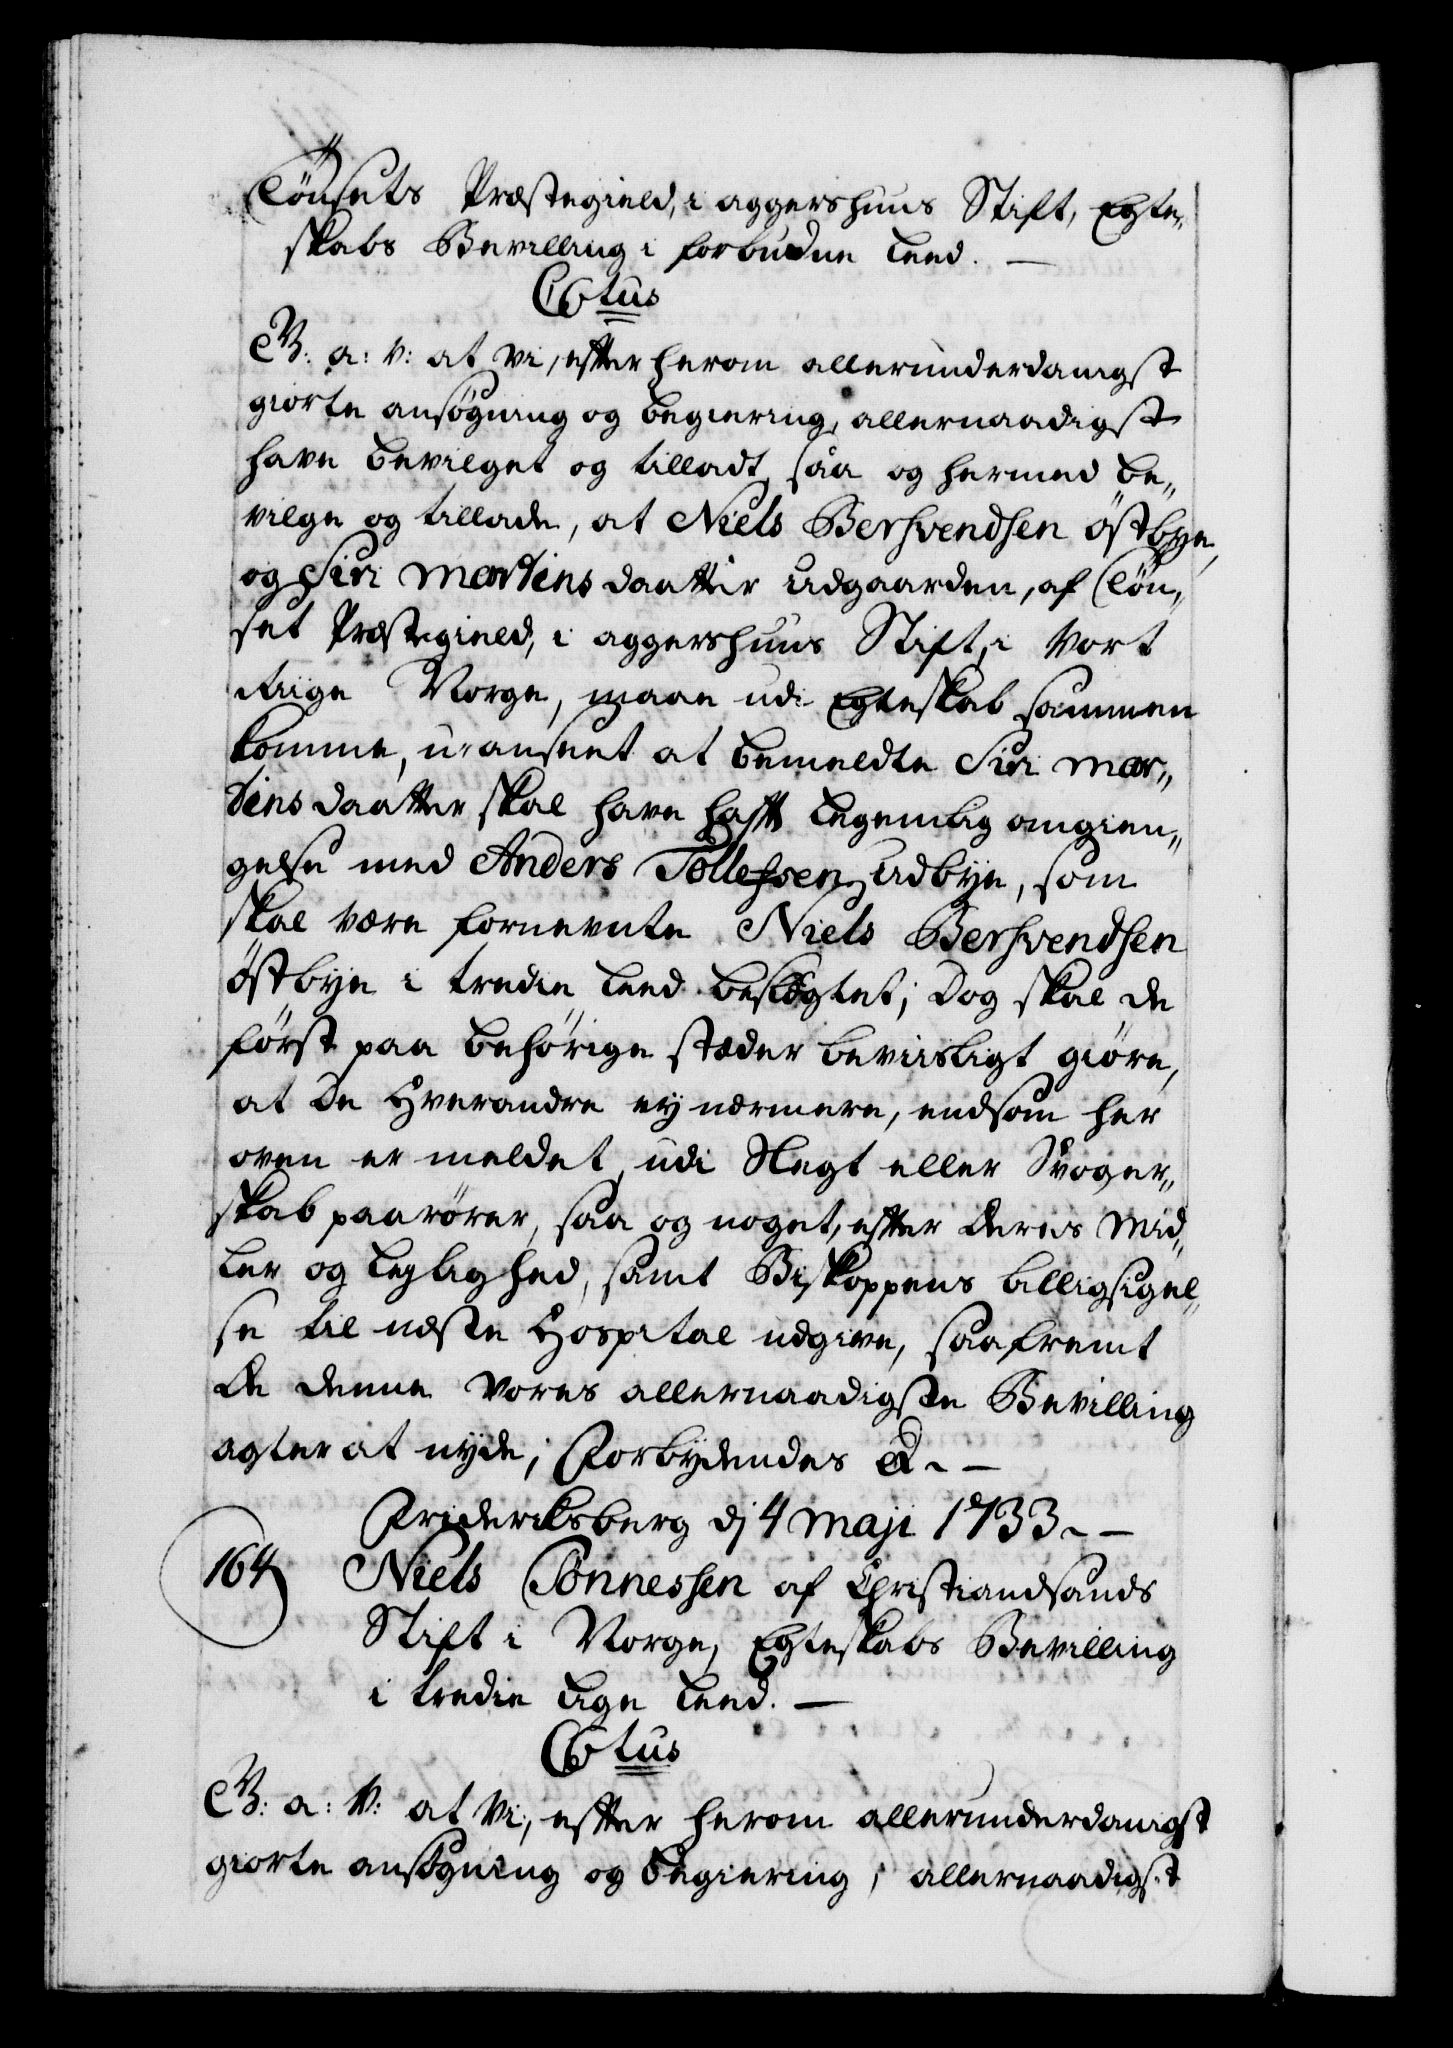 Tönsets Præstegield, i aggershuus Stift, Egte„
skabs Bevilling i forbudne Leed. —
C6tus
G: a: V: at Vi, efter herom allerunderdanigst
giorte ansøgning og begiering, allernaadigst
have bevilget og tilladt, saa og hermed be„
vilge og tillade, at Niels Bersvendsen östbye,
og Siri Martens daatter Udgaarden, af Tön„
set Præstegield, i aggershuus Stift, i Vort
Riige Norge, maae udi Egteskab sammen
komme, u-anseet at bemeldte Siri Mar„
tens daatter skal have hafft legemlig omgien„
gelse med Anders Tollefsen Udbye, som
skal være fornevnte Niels Bersvendsen
östbye i tredie Leed beslægtet; Dog skal de
først paa behörige stæder beviisligt giöre,
at De Hverandre ey nærmere, endsom her
oven er meldet, udi Slegt eller Svoger„
skab paarörer, saa og noget, efter deres Mid„
ler og leylighed, samt Biskoppens billigsigel„
se til næste Hospital udgive, saafremt
De denne Vores allernaadigste Bevilling
agter at nyde; Forbydendes &. —
Friderichsberg dj 4 Maji 1733. —
164 Niels Tönnessen af Christiandsands
Stift i Norge, Egteskabs Bevilling
i tredie lige Leed. —
C6tus
G: a: V: at Vi, efter herom allerunderdanigst
giorte ansøgning og begiering, allernaadigst